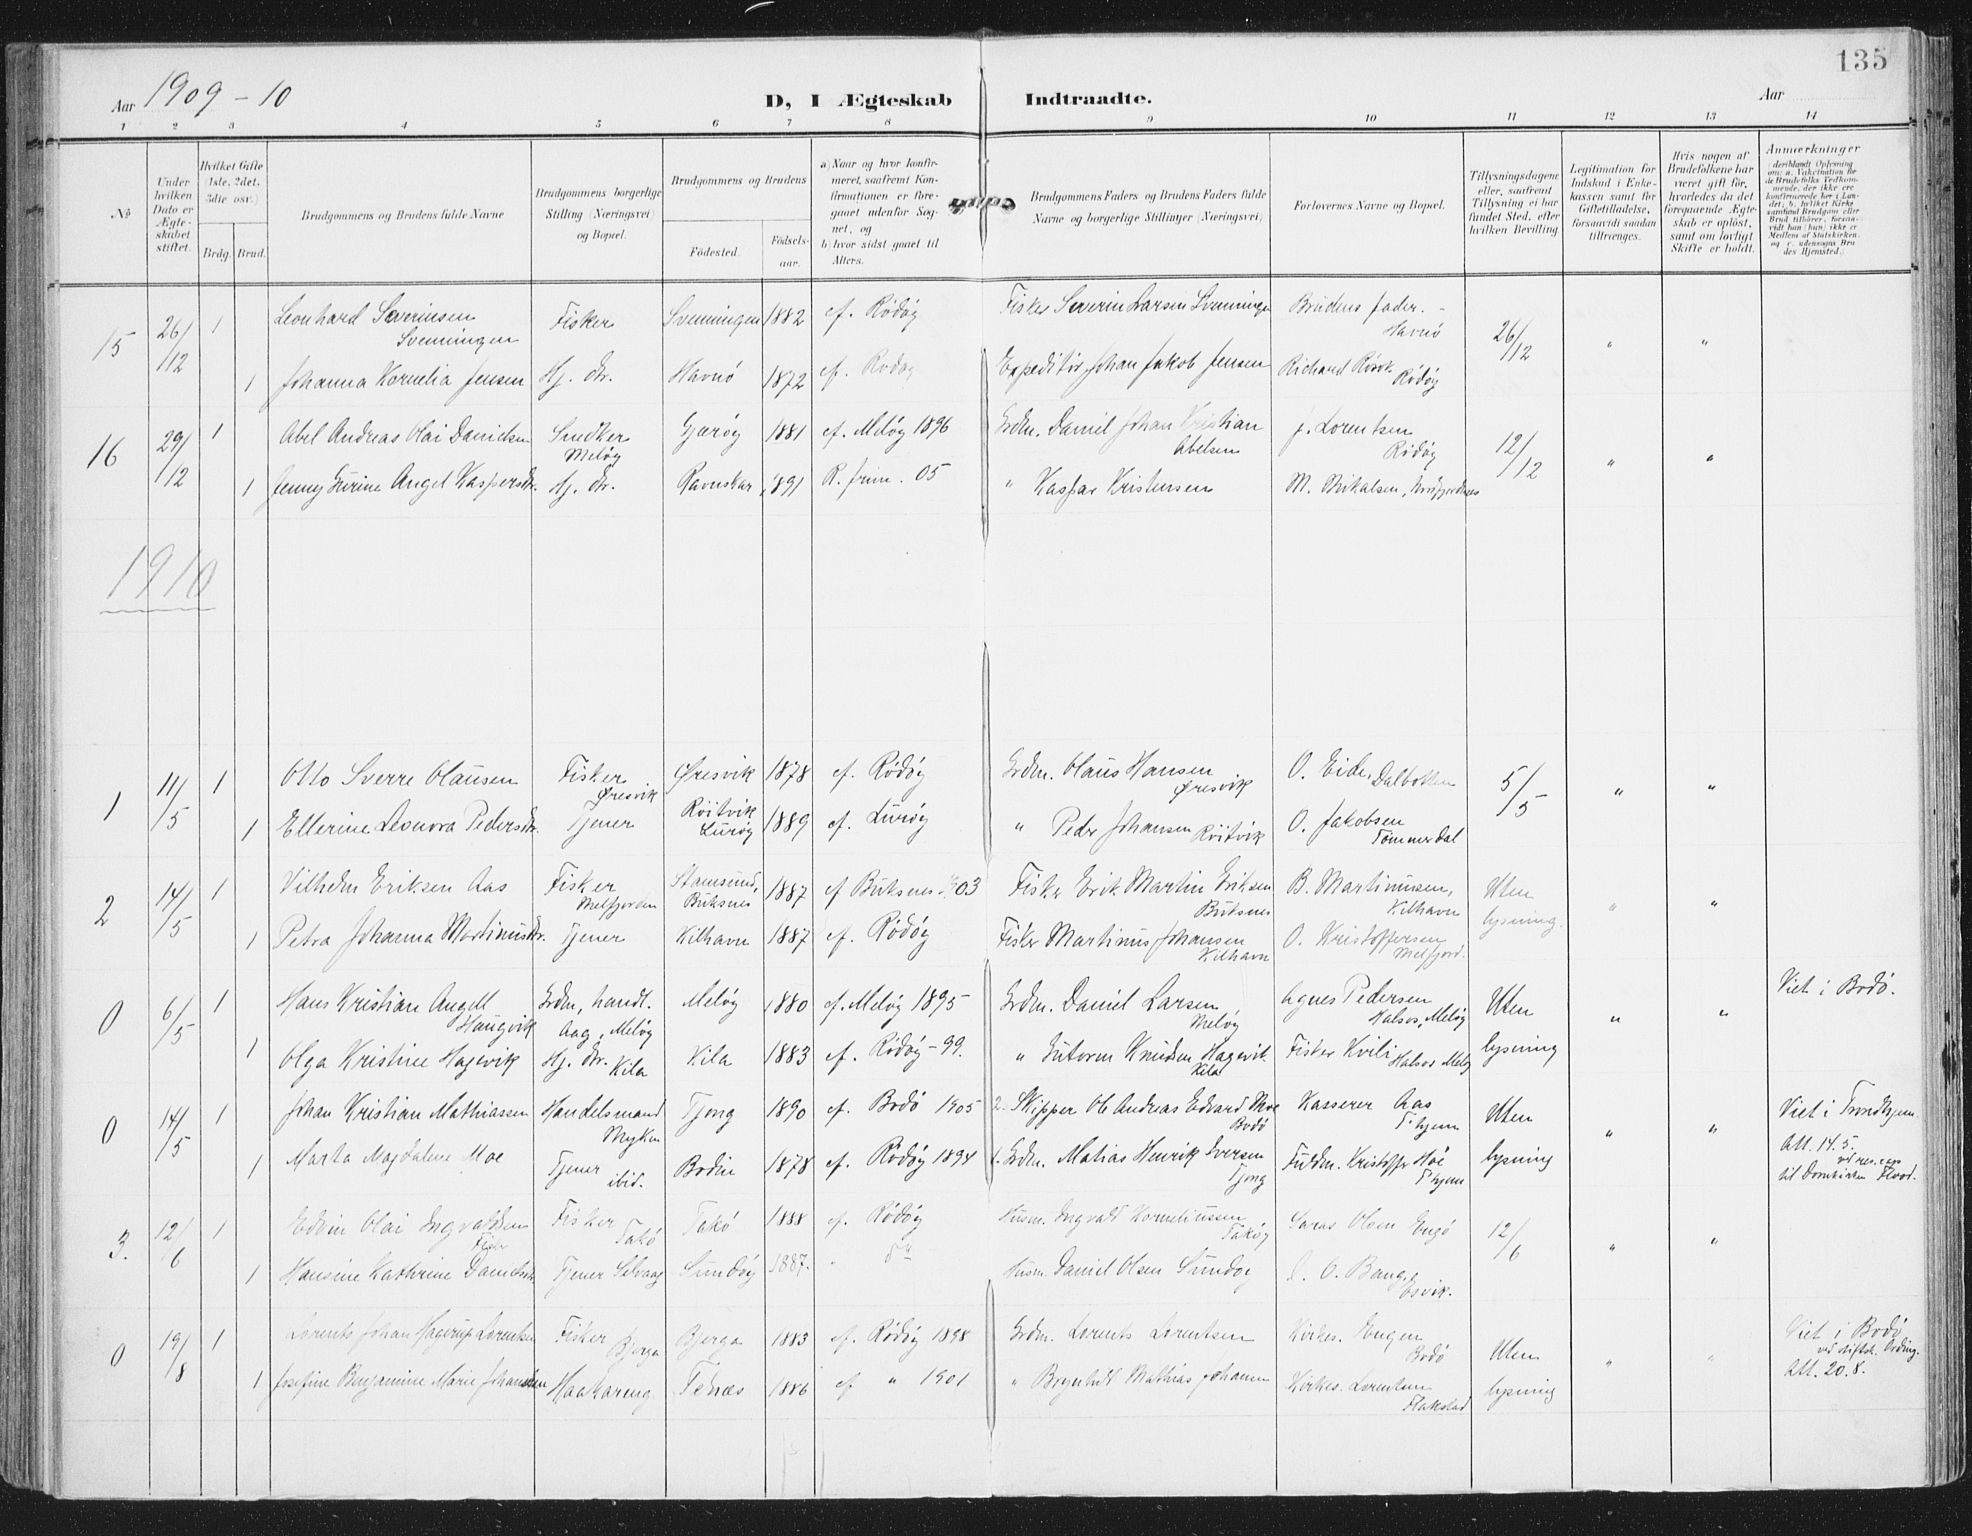 135
Aar 1909-10
D, I Ægteskab Indtraadte.
Aar
1 2 3 4 5 6 7 8 9 10 11 12 13 14
No
Under hvilken Dato er Ægteskabet stiftet.
Hvilket Gifte (1ste, 2det, 3die osv.)
Brdg. Brud.
Brudgommens og Brudens fulde Navne
Brudgommens borgerlige Stilling (Næringsvei) og Bopæl.
Brudgommens og Brudens
Fødested.
Fødselsaar.
a) Naar og hvor konfirmeret, saafremt Konfirmationen er foregaaet udenfor Sognet, og
b) hvor sidst gaaet til Alters.
Brudgommens Faders og Brudens Faders fulde Navne og borgerlige Stillinger (Næringsvei)
Forlovernes Navne og Bopæl.
Tillysningsdagene eller, saafremt Tillysning ei har fundet Sted, efter hvilken Bevilling.
Legitimation for Indskud i Enkekassen samt for Giftetilladelse, forsaavidt saadan tiltrænges.
Hvis nogen af Brudefolkene har været gift før, hvorledes da det foregaaende Ægteskab er opløst, samt om lovligt Skifte er holdt.
Anmærkninger
15 26/12 1 Leonhard Severinsen Svenningen Fisker Svenningen 1882 cf. Rödöy Fisker Severin Larsen Svenningen Brudens fader. - Havnö 26/12 " "
1 Johanna Kornelia Jensen Hj. dr. Havnö 1872 cf. Rödöy Expeditör Johan Jakob Jensen Richard Rörvik Rödöy
16 29/12 1 Abel Andreas Olai Danielsen Snedker Melöy Gjeröy 1881 cf. Melöy 1896 Grdm. Daniel Johan Kristian Abelsen J. Lorentsen Rödöy 12/12 " "
1 Jenny Angel Kaspersdr. Hj. dr. Ravnskar 1891 R. 05 " Kaspar Kristensen M. Mikalsen,
1910
1 11/5 1 Otto Sverre Olausen Fisker Øresvik Øresvik 1878 cf. Rödöy Grdm. Olaus Hansen Øresvik O. Eide, Dalbotten 5/5 " "
1 Ellerine Leonora Pedersdr. Tjener Röitvik Luröy 1889 cf. Luröy " Peder Johansen Röitvik O. Jakobsen Tömmerdal
2 14/5 1 Vilhelm Eriksen Aas Fisker Melfjorden Stamsund, Buksnes 1887 cf Buksnes 03 Fisker Erik Martin Eriksen Buksnes B. Martinussen, Kilhavn Uten lysning. " "
1 Petra Johanna Martinusdr. Tjener Kilhavn 1887 cf. Rödöy Fisker Martinus Johansen Kilhavn O. Kristoffersen Melfjord.
0 6/5 1 Hans Kristian Angell Haugvik Grdm, handl. Aag, Melöy Melöy 1880 cf. Melöy 1895 Grdm. Daniel Larsen Melöy Agnes Pedersen Halsos, Melöy Uten lysning " " Viet i Bodö.
1 Olga Kristine Hagevik Hj. dr. Kila Kila 1883 cf. Rödöy - 99. " Gutorm Knudsen Hagevik Kila Fisker Kvili Halsos Melöy
0 14/5 1 Johan Kristian Mathiassen Handelsmand Myken Tjong 1890 cf. Bodö 1905 2. Skipper Ole Andreas Edvard Moe Bodö Kasserer Aas T.hjem Uten lysning " " Viet i Trondhjem
Att. 14.5.
til Domkirken
1 Marta Magdalene Moe Tjener ibid. Bodin 1878 cf. Rödöy 1894 1. Grdm. Matias Henrik Iversen Tjong Fuldm. Kristoffer Moe T.hjem
3. 12/6 1 Edvin Olai Ingvaldsen Fisker Takö Takö 1888 cf. Rödöy Husm. Ingvald Korneliussen Taköy Olsen Engö 12/6 " "
1 Hansine Kathrine Danielsdr. Tjener Selvaag Sundöy 1887. " do Husm. Daniel Olsen Sundöy O. Bang, Esvik.
0 19/8 1 Lorents Johan Hagerup Lorentsen Fisker Bjerga Bjerga 1883 cf. Rödöy 1898 Grdm. Lorents Lorentsen Kirkes. Engen Bodö Uten lysning " " Viet i Bodö
Att. 20.8.
1 Josefine Benjamine Marie Johansen Haakareng Telnæs 1886 cf " 1901 " Mathias Johansen Kirkes. Lorentsen Flakstad